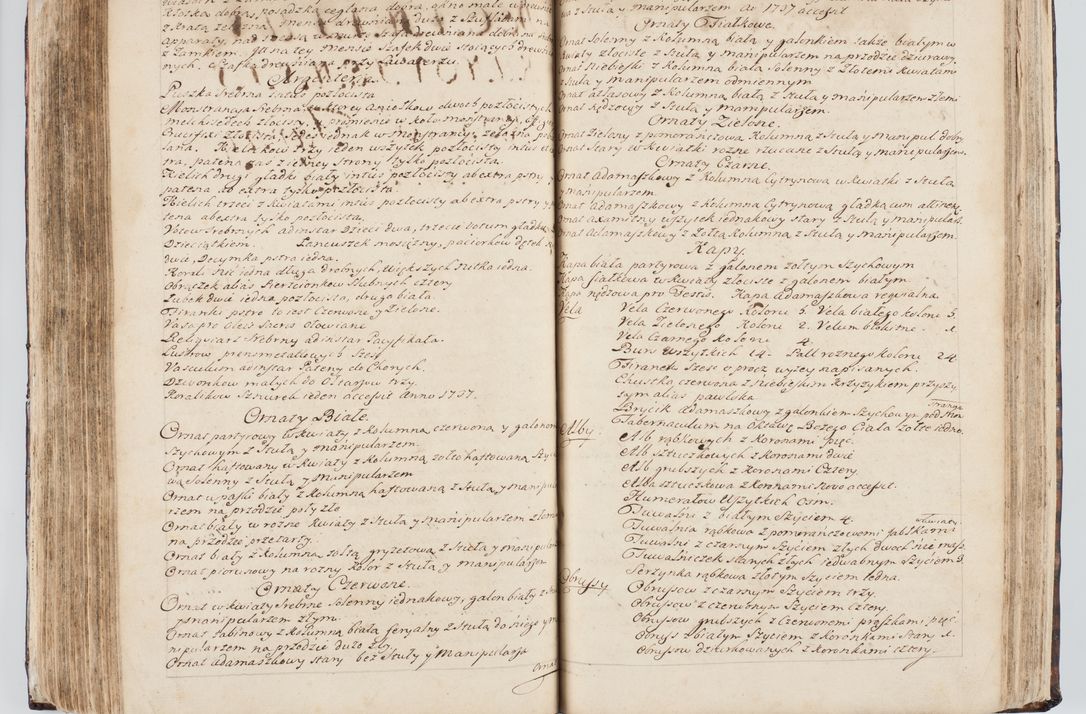 Kłoska dobra, posadzka ceglana dobra, okno małe w
z Kratą żelazną
Aparaty, nad
z Zamkiem. Item na tey mensie Szafek dwie stoiących
nych, Szafka drewniana przy
Argenteria
Puszka srebrna cała pozłocista
Monstrancya srebrna w ktorey Aniołkow dwoch pozłocistych
Crucifixi
lana. Kielichow trzy ieden wszytek pozłocisty intus et
tra, patena zas z iedney strony tylko pozłocista.
Kielich drugi gładki biały intus pozłocisty ab extra pstry
patena ab extra tylko pozłocista
Kielich trzeci z kwiatami intus pozłocisty ab extra pstry y
tena ab extra tylko pozłocista.
Votow srebrnych ad instar Dzieci dwa, trzecie votum gładkie z
Dzieciątkiem. Łancuszek mosiężny, paciorkow
dwie, Decymka pstra iedna.
Korali nić iedna długa drobnych, większych nitka iedna.
Obrączek alias Pierscionkow slubnych cztery
Łubek dwie iedna pozłocista, druga biała.
Firanki pstre to iest Czerwone y Zielone.
Vasa pro oleis sacris ołowiane
Reliquiarz srebrny ad instar Pacyfikała.
Lustrow prensmetalowych szesc
Vasculum ad instar Pateny do Chorych.
Dzwonkow małych do Ołtarzow trzy.
Koralikow sznurek ieden accessit Anno 1797.
Ornaty Białe.
Ornat partyrowy w kwiaty z kolumną czerwoną y galonem
szychowym z stułą y manipularzem.
Ornat haftowany w kwiaty z kolumną złoto haftowaną
wa solenny z stułą y manipularzem
Ornat w paski biały z kolumną haftowaną z stułą y manipu
rzem na przodzie poły złe
Ornat biały w rożne kwiaty z stułą y manipularzem złem
na przodzie przetarty.
Ornat biały z kolumną żołtą gryzetową z stułą y manipular
Ornat piorusowy na rozny kolor z stułą y manipularzem
Ornaty Czerwone.
Ornat w kwiaty srebrne solenny iednakowy, galon biały z
y manipularzem złym.
Ornat łabinowy z kolumną białą feryalny z stułą do niego y m
nipularzem na przodzie dużo zły.
Ornat adamaszkowy stary bez stuły y manipularza
Ornat
z stułą y manipularzem Ao 1797 accessit
Ornaty Fiałkowe.
Ornat solenny z kolumną białą y galonkiem także białym w
kwiaty złociste z stułą y manipularzem na przodzie dziurawy.
Ornat niebieski z kolumną białą solenny z złotemi kwiatami
z stułą y manipularzem odmiennym
Ornat atłasowy z kolumną białą z stułą y manipularzem złemi
Ornat nędzowy z stułą y manipularzem.
Ornaty Zielone.
Ornat zielony z pomaranczową kolumną z stułą y manipul: dobry
Ornat stary w kwiatki rozne rzucane z stułą y manipularzem.
Ornaty Czarne.
Ornat adamaszkowy z kolumną cytrynową w kwiatki z stułą
y manipularzem
Ornat adamaszkowy z kolumną cytrynową gładką cum attinen:
Ornat axamitny wszytek iednakowy stary z stułą y manipular:
Ornat adamaszkowy z żołtą kolumną z stułą y manipularzem.
Kapy.
Kapa biała partyrowa z galonem żołtym szychowym
Kapa fiałkowa w kwiaty złociste z galonem białym
Kapa nędzowa pro Festis. Kapa adamaszkowa regularna
Vela Vela Czerwonego koloru 5. Vela białego koloru 5.
Vela Zielonego koloru 2. Velum błękitne. 1.
Vela Czarnego koloru 4.
Burs wszytkich 14. Pall roznego koloru 24
Firanek szesc oprocz wyżey napisanych.
Chustka czerwona z niebieskim krzyżykiem przyszy
tym alias pawilka
Brycik adamaszkowy z galonkiem szychowym pod Mon
strancyą
Tabernaculum na Oktawę Bożego Ciała żołte iedno.
Alby. Alb rąbkowych z koronami pięc.
Alb sztuczkowych z koronami dwie
Alb grubszych z koronami cztery
Alba sztuczkowa z koronkami novo accessit.
Humerałow wszytkich osm.
Tuwalni z białym szyciem 4.
Tuwalnia rąbkowa z pomaranczowemi jabłkami
w kwiaty
Tuwalni z czarnym szyciem złych dwoch nie masz
Tuwalniczek starych złych iedwabnym szyciem 3
Serzynka rąbkowa złotym szyciem iedna.
Obrussy Obrussow z czarnym szyciem trzy.
Obrussow z czerwonym szyciem cztery.
Obrussow grubszych z czerwonemi prążkami pięc.
Obruss z białym szyciem z koronkami stary 1.
Obrussow dzierkowanych z koronkami cztery.